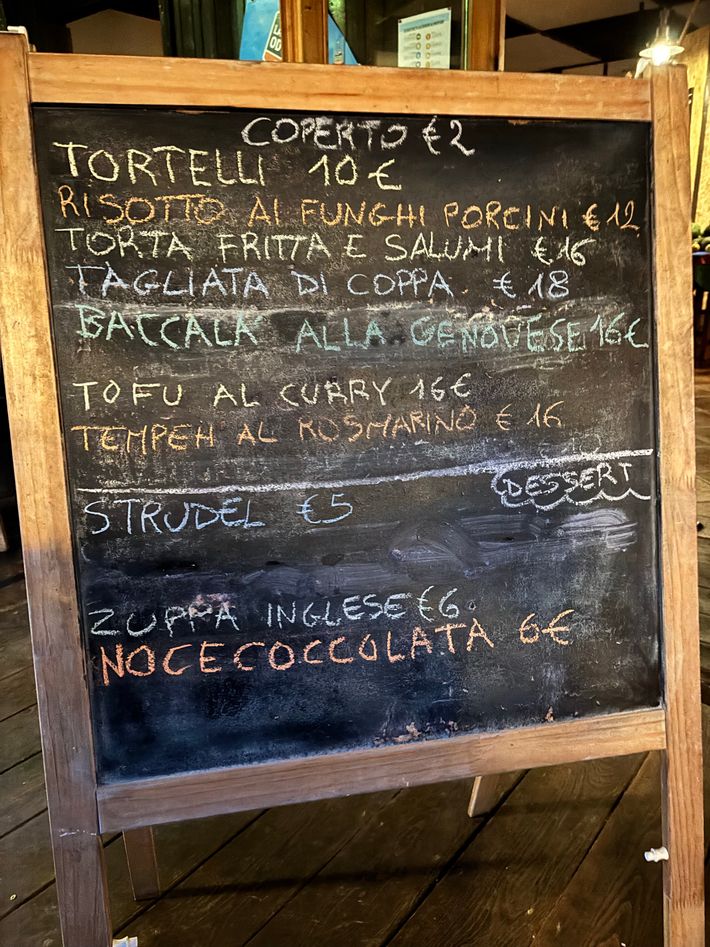 COPERTO €2
TORTELLI 10€
RISOTTO AI FUNGHI PORCINI €12
TORTA FRITTA E SALUMI €16
TAGLIATA DI COPPA €18
BACCALÀ ALLA GENOVESE 16€
TOFU AL CURRY 16€
TEMPEH AL ROSMARINO €16
DESSERT
STRUDEL €5
ZUPPA INGLESE €6
NOCECOCCOLATA 6€